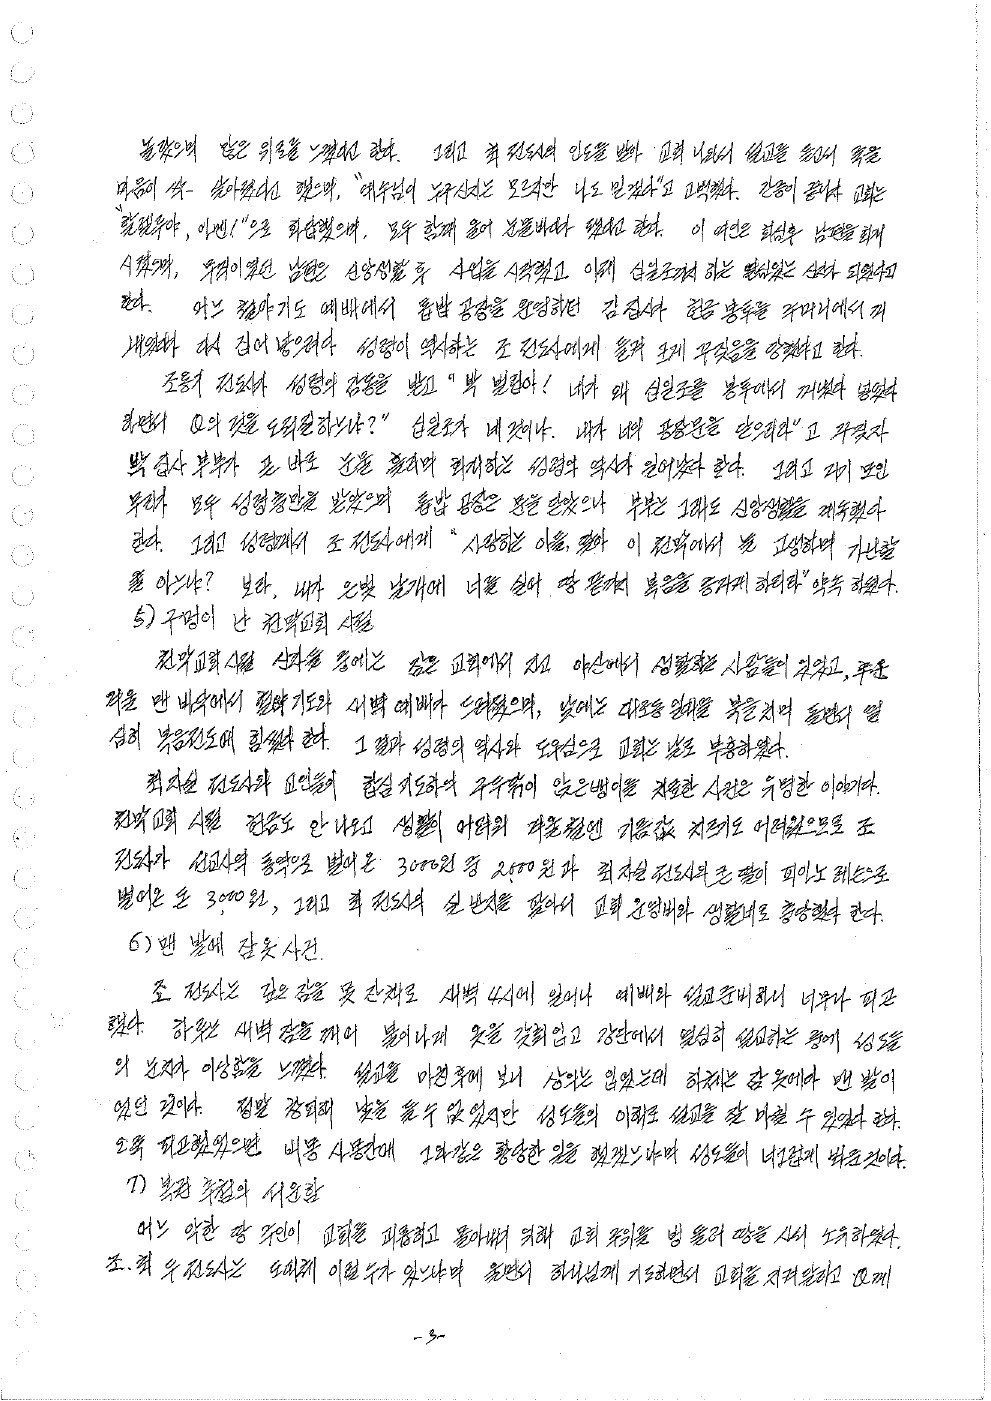 놀랐으며 많은 위로를 느꼈다고 한다. 그리고 최 전도사의 인도를 받아 교회 나와서 설교를 듣고서 죽을
마음이 싹 달아났다고 했으며, "예수님이 누구신지는 모르지만 나도 믿겠다"고 고백했다. 간증이 끝나자 교회는
"할렐루야, 아멘!"으로 화답했으며, 모두 함께 울어 눈물바다가 됐다고 한다. 이 여인은 회심후 남편을 회개
시켰으며, 무직이었던 남편은 신앙생활 후 사업을 시작했고 이제 십일조까지 하는 열심있는 신자가 되었다고
한다. 어느 철야기도 예배에서 톱밥 공장을 운영하던 김 집사가 헌금 봉투를 주머니에서 꺼
내었다가 다시 집어 넣으려다 성령이 역사하는 조 전도사에게 들켜 크게 꾸짖음을 당했다고 한다.
조용기 전도사가 성령의 감동을 받고 "박 벌림아! 네가 왜 십일조를 봉투에서 꺼냈다 넣었다
하면서 의 것을 도적질하느냐?" 십일조가 네것이냐. 내가 너의 공장문을 닫으리라"고 꾸짖자
박 집사 부부가 곧 바로 눈물 흘리며 회개하는 성령의 역사가 일어났다 한다. 그리고 거기 모인
무리가 모두 성령충만을 받았으며 톱밥 공장은 문을 닫았으나 부부는 그래도 신앙생활을 계속했다
한다. 그리고 성령께서 조 전도사에게 "사랑하는 아들, 딸아 이 천막에서 늘 고생하며 가난할
줄 아느냐? 보라, 내가 은빛 날개에 너를 실어 땅 끝까지 복음을 증거케 하리라"약속 하셨다.
5) 구멍이 난 천막교회 시절
천막교회시절 신자들 중에는 집은 교회에서 자고 야산에서 생활하는 사람들이 있었고, 추운
겨울 맨 바닥에서 철야기도와 새벽 예배가 드려졌으며, 낮에는 대조동 일대를 북을치며 돌면서 열
심히 복음전도에 힘썼다 한다. 그 결과 성령의 역사와 도우심으로 교회는 날로 부흥하였다.
최자실 전도사와 교인들이 합심 기도하여 구두닦이 앉은뱅이를 치료한 사건은 유명한 이야기다.
천막교회 시절 헌금도 안 나오고 생활이 어려워 겨울철엔 기름값 치르기도 어려웠으므로 조
전도사가 선교사의 통역으로 벌어온 3000원 중 2,000원과 최자실 전도사의 큰 딸이 피아노 레슨으로
벌어온 돈 3,000원, 그리고 최 전도사의 실 반지를 팔아서 교회 운영비와 생활비로 충당했다 한다.
6) 맨 발에 잠옷 사건.
조 전도사는 깊은 잠을 못 잔채로 새벽 4시에 일어나 예배와 설교준비하니 너무나 피곤
했다. 하루는 새벽 잠을 깨어 일어나게 옷을 갖춰입고 강단에서 열심히 설교하는 중에 성도들
의 눈치가 이상함을 느꼈다. 설교를 마친후에 보니 상의는 입었는데 하체는 잠 옷에다 맨 발이
었던 것이다. 정말 창피해 낯을 들 수 없었지만 성도들의 이해로 설교를 잘 마칠 수 있었다 한다.
오죽 피곤했었으면 비몽 사몽간에 그와같은 황당한 일을 했겠느냐며 성도들이 너그럽게 봐준것이다.
7) 복권 추첨의 서운함
어느 악한 땅 주인이 교회를 괴롭히고 몰아내기 위해 교회 주위를 빙 둘러 땅을 사서 소유하였다.
조.최 두 전도사는 도대체 이럴수가 있느냐며 울면서 하나님께 기도하면서 교회를 지켜달라고 께
-3-